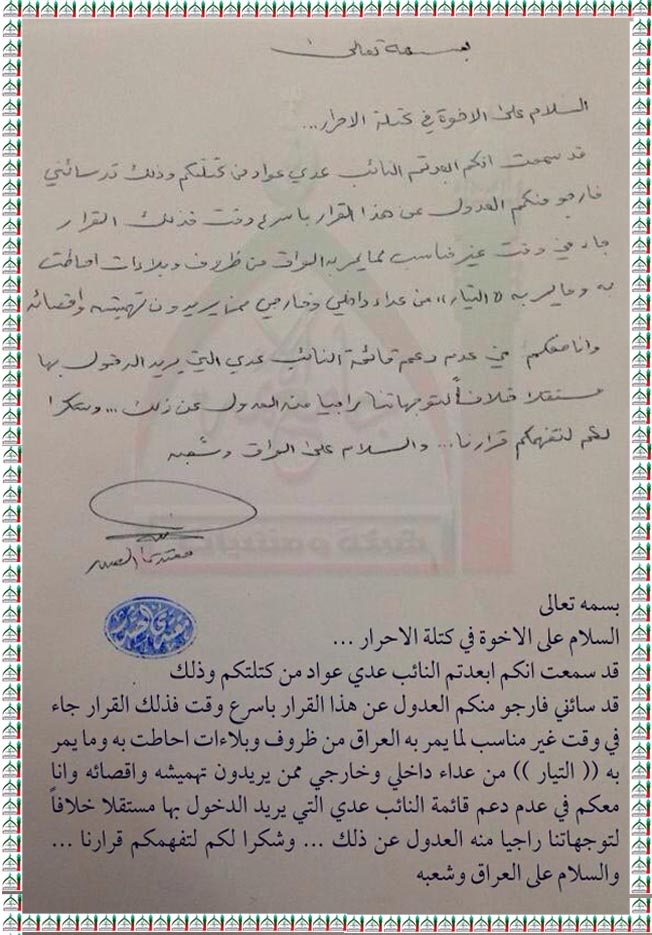 بسمه تعالى
السلام على الاخوة في كتلة الاحرار...
قد سمعت انكم ابعدتم النائب عدي عواد من كتلتكم وذلك قد سائني
فارجو منكم العدول عن هذا القرار باسرع وقت فذلك القرار
جاء في وقت غير مناسب لما يمر به العراق من ظروف وبلاءات احاطت
به وما يمر به ((التيار)) من عداء داخلي وخارجي ممن يريدون تهميشه واقصائه
وانا معكم في عدم دعم قائمة النائب عدي التي يريد الدخول بها
مستقلا خلافاً لتوجهاتنا راجيا منه العدول عن ذلك... وشكرا
لكم لتفهمكم قرارنا... والسلام على العراق وشعبه
مقتدى الصدر
بسمه تعالى
السلام على الاخوة في كتلة الاحرار ...
قد سمعت انكم ابعدتم النائب عدي عواد من كتلتكم وذلك
قد سائني فارجو منكم العدول عن هذا القرار باسرع وقت فذلك القرار جاء
في وقت غير مناسب لما يمر به العراق من ظروف وبلاءات احاطت به وما يمر
به (( التيار )) من عداء داخلي وخارجي ممن يريدون تهميشه واقصائه وانا
معكم في عدم دعم قائمة النائب عدي التي يريد الدخول بها مستقلا خلافاً
لتوجهاتنا راجيا منه العدول عن ذلك ... وشكرا لكم لتفهمكم قرارنا ...
والسلام على العراق وشعبه